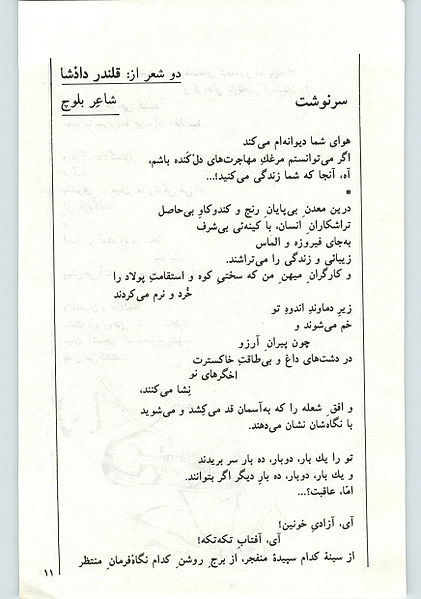 دو شعر از: قلندر دادشا
شاعِرِ بلوچ
سرنوشت
هوای شما دیوانه‌ام می‌کند
اگر می‌توانستم مرغكِ مهاجرت‌های دل‌ْکَنده باشم،
آه، آنجا که شما زندگی می‌کنید!...
*
درین معدنِ بی‌پایانِ رنج و کندوکاوِ بی‌حاصل
تراشکارانِ انسان، با کینه‌ئی بی‌شرف
به‌جای فیروزه و الماس
زیبائی و زندگی را می‌تراشند.
و کارگرانِ میهنِ من که سختیِ کوه و استقامتِ پولاد را
خُرد و نرم می‌کردند
زیرِ دماوندِ اندوهِ تو
خم می‌شوند و
چون پیرانِ آرزو
در دشت‌های داغ و بی‌طاقتِ خاکسترت
اخگرهای نو
نِشا می‌کنند،
و افقِ شعله را که به‌آسمان قد می‌کِشد و می‌شوید
با نگاه‌شان نشان می‌دهند.
تو را یك بار، دوبار، ده بار سر بریدند
و یك بار، دوبار، ده بارِ دیگر اگر بتوانند.
امّا، عاقبت؟...
آی، آزادیِ خونین!
آی، آفتابِ تکه‌تکه!
از سینهٔ کدام سپیدهٔ منفجر، از برجِ روشنِ کدام نگاهْ‌فرمانِ منتظر
۱۱